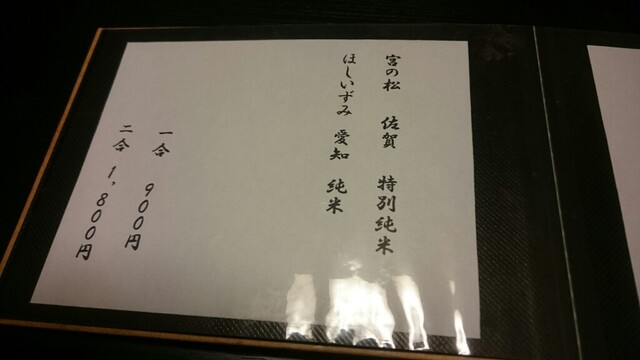 宮の松 佐賀 特別純米
ほしいずみ 愛知 純米
一合 900円
二合 1,800円